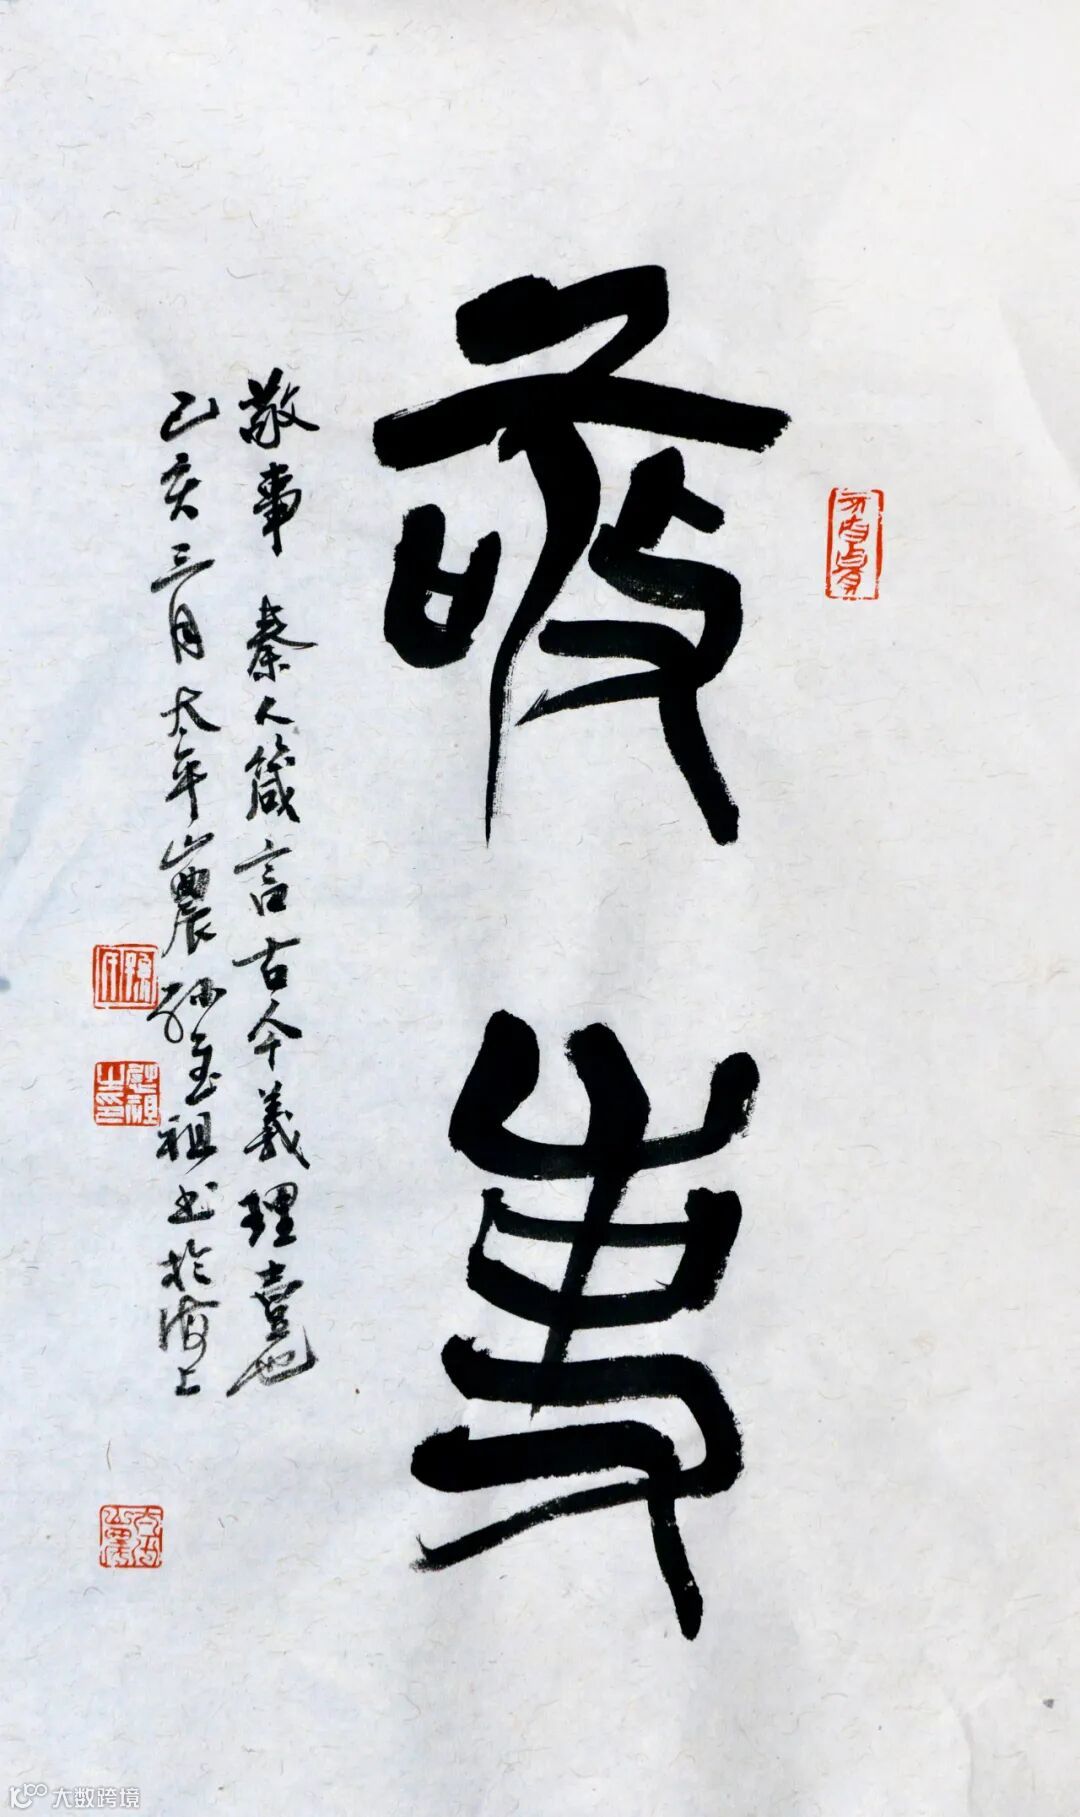 敬事
敬事 秦人箴言古今義理壹也
己亥三月太年山農孫慰祖书於海上
大数跨境